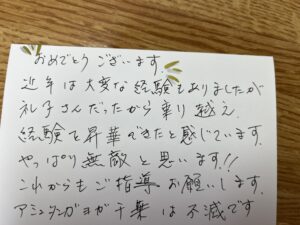 おめでとうございます。
近年は大変な経験もありましたが
礼子さんだったから乗り越え
経験を昇華できたと感じています。
やっぱり無敵と思います!!
これからもご指導お願いします。
アシュタンガヨガ千葉は不滅です